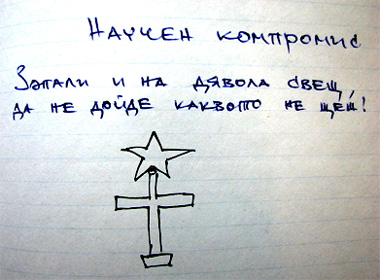 Научен компромис
Запали и на дявола свещ,
да не дойде каквото не щеш!